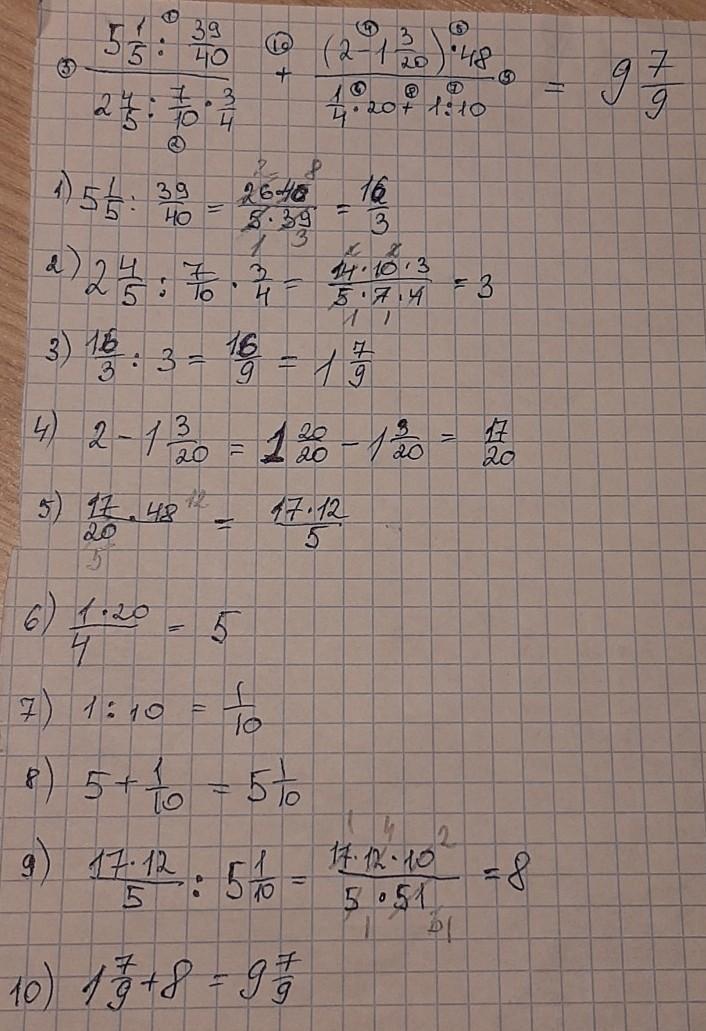 (5 1/5 : 39/40) / (2 4/5 : 7/10 · 3/4) + ((2 - 1 3/20) · 48) / (1/4 · 20 + 1:10) = 9 7/9
1) 5 1/5 : 39/40 = 26·40 / 5·39 = 16/3
2) 2 4/5 : 7/10 · 3/4 = 14·10·3 / 5·7·4 = 3
3) 16/3 : 3 = 16/9 = 1 7/9
4) 2 - 1 3/20 = 1 20/20 - 1 3/20 = 17/20
5) 17/20 · 48 = 17·12 / 5
6) 1·20 / 4 = 5
7) 1:10 = 1/10
8) 5 + 1/10 = 5 1/10
9) 17·12 / 5 : 5 1/10 = 17·12·10 / 5·51 = 8
10) 1 7/9 + 8 = 9 7/9